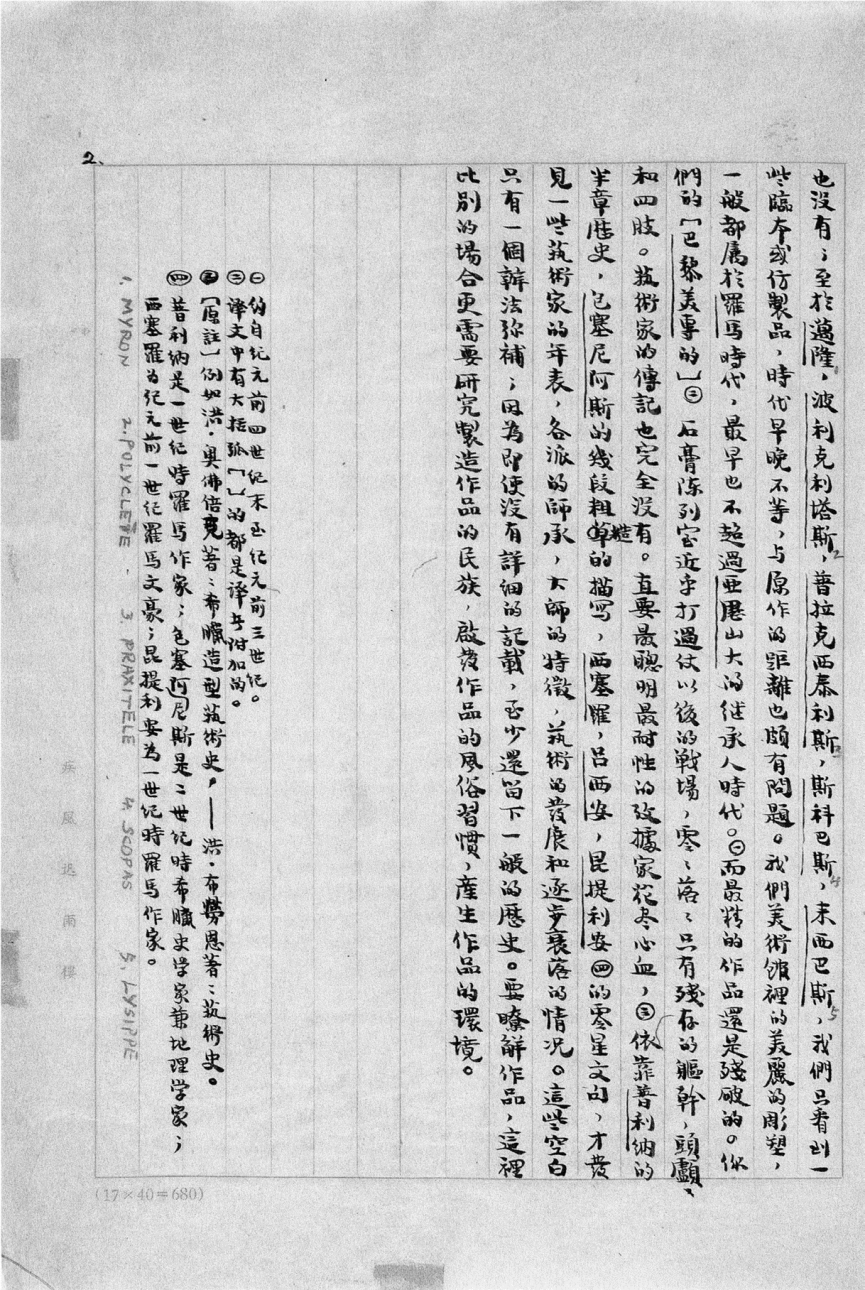 2.
也没有；至於邁隆，波利克利塔斯，普拉克西泰利斯，斯科巴斯，来西巴斯，我們只看到一
些臨本或仿製品，時代早晚不等，与原作的距離也頗有問題。我們美術館裡的美麗的彫塑，
一般都屬於羅馬時代，最早也不超過亚歷山大的继承人時代。㊀而最精的作品還是殘破的。你
們的［巴黎美專的］㊁石膏陈列室近乎打過仗以後的戰場，零、落、只有殘存的軀幹，頭顱、
和四肢。藝術家的傳記也完全没有。直要最聰明最耐性的攷據家花尽心血，㊂依靠普利納的
半章歷史，包塞尼阿斯的幾段粗糙的描写，西塞羅，吕西安，昆提利安㊃的零星文句，才發
見一些藝術家的年表，各派的師承，大師的特徵，藝術的發展和逐步衰落的情况。這些空白
只有一個辦法弥補；因為即使没有詳细的記載，至少還留下一般的歷史。要瞭解作品，這裡
比别的場合更需要研究製造作品的民族，啟發作品的風俗習慣，産生作品的環境。
㊀ 约自纪元前四世纪末至纪元前三世纪。
㊁ 译文中有大括弧［］的都是译者附加的。
㊂［原註］例如洪·奥佛倍克著：希臘造型藝術史，——洪·布勞恩著：藝術史。
㊃ 普利納是一世纪時羅馬作家；包塞阿尼斯是二世纪時希臘史学家兼地理学家；
西塞羅为纪元前一世纪羅馬文豪；昆提利安為一世纪時羅馬作家。
1. MYRON 2. POLYCLETE 3. PRAXITELE 4. SCOPAS 5. LYSIPPE
疾風迅雨樓
(17×40=680)